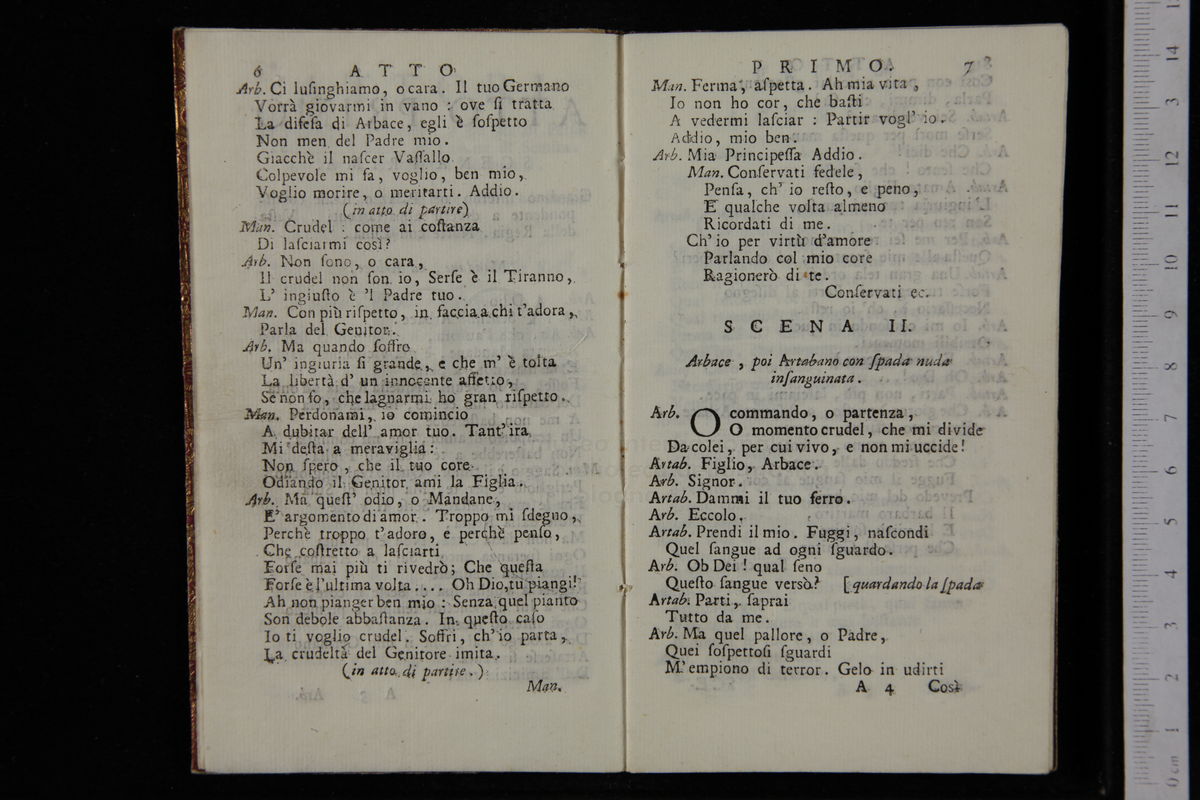 6 A T T O
Arb. Ci luſinghiamo, o cara. Il tuo Germano
Vorrà giovarmi in vano : ove ſi tratta
La difeſa di Arbace, egli è ſoſpetto
Non men del Padre mio.
Giacchè il naſcer Vaſſallo
Colpevole mi fa, voglio, ben mio,
Voglio morire, o meritarti. Addio.
(in atto di partire)
Man. Crudel : come ai coſtanza
Di laſciarmi così?
Arb. Non ſono, o cara,
Il crudel non ſon io, Serſe è il Tiranno,
L' ingiuſto è 'l Padre tuo.
Man. Con più riſpetto, in faccia a chi t'adora,
Parla del Genitor.
Arb. Ma quando ſoffro
Un' ingiuria ſi grande, e che m' è tolta
La libertà d' un innocente affetto,
Se non ſo, che lagnarmi ho gran riſpetto.
Man. Perdonami, io comincio
A dubitar dell' amor tuo. Tant' ira
Mi deſta a meraviglia :
Non ſpero, che il tuo core
Odiando il Genitor ami la Figlia.
Arb. Ma queſt' odio, o Mandane,
E' argomento di amor. Troppo mi ſdegno,
Perchè troppo t'adoro, e perchè penſo,
Che coſtretto a laſciarti
Forſe mai più ti rivedrò; Che queſta
Forſe è l'ultima volta.... Oh Dio, tu piangi!
Ah non pianger ben mio : Senza quel pianto
Son debole abbaſtanza. In queſto caſo
Io ti voglio crudel. Soffri, ch'io parta,
La crudeltà del Genitore imita.
(in atto di partire.)
Man.
P R I M O. 7
Man. Ferma, aſpetta. Ah mia vita,
Io non ho cor, che baſti
A vedermi laſciar : Partir vogl' io.
Addio, mio ben.
Arb. Mia Principeſſa Addio.
Man. Conſervati fedele,
Penſa, ch' io reſto, e peno,
E qualche volta almeno
Ricordati di me.
Ch' io per virtù d'amore
Parlando col mio core
Ragionerò di te.
Conſervati ec.
S C E N A II.
Arbace, poi Artabano con ſpada nuda
inſanguinata.
Arb. O commando, o partenza,
O momento crudel, che mi divide
Da colei, per cui vivo, e non mi uccide!
Artab. Figlio, Arbace.
Arb. Signor.
Artab. Dammi il tuo ferro.
Arb. Eccolo.
Artab. Prendi il mio. Fuggi, naſcondi
Quel ſangue ad ogni ſguardo.
Arb. Oh Dei ! qual ſeno
Queſto ſangue versò? [quardando la ſpada
Artab. Parti, ſaprai
Tutto da me.
Arb. Ma quel pallore, o Padre,
Quei ſoſpettoſi ſguardi
M' empiono di terror. Gelo in udirti
A 4 Così